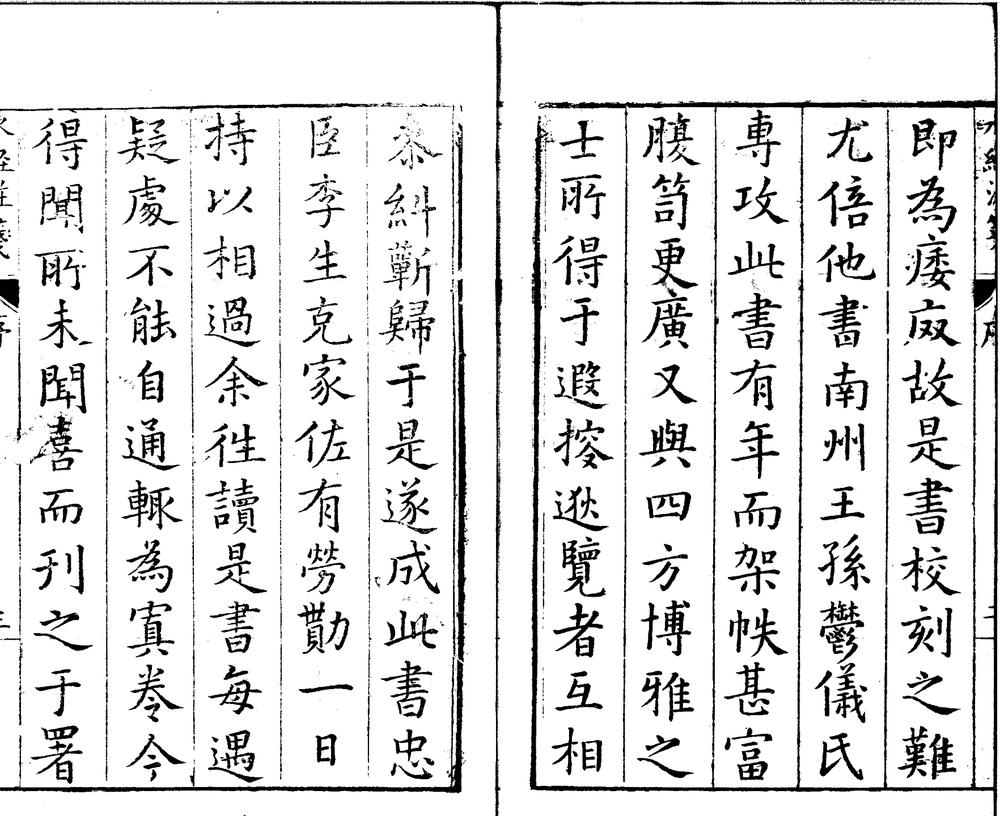 即為痿疭故是書校刻之難
尤倍他書南州王孫鬱儀氏
專攻此書有年而架帙甚富
腹笥更廣又與四方博雅之
士所得于遐搜逖覽者互相
叅糾蘄歸于是遂成此書忠
臣李生克家佐有勞勩一日
持以相過余徃讀是書每遇
疑處不能自通輙為寘卷今
得聞所未聞喜而刊之于署